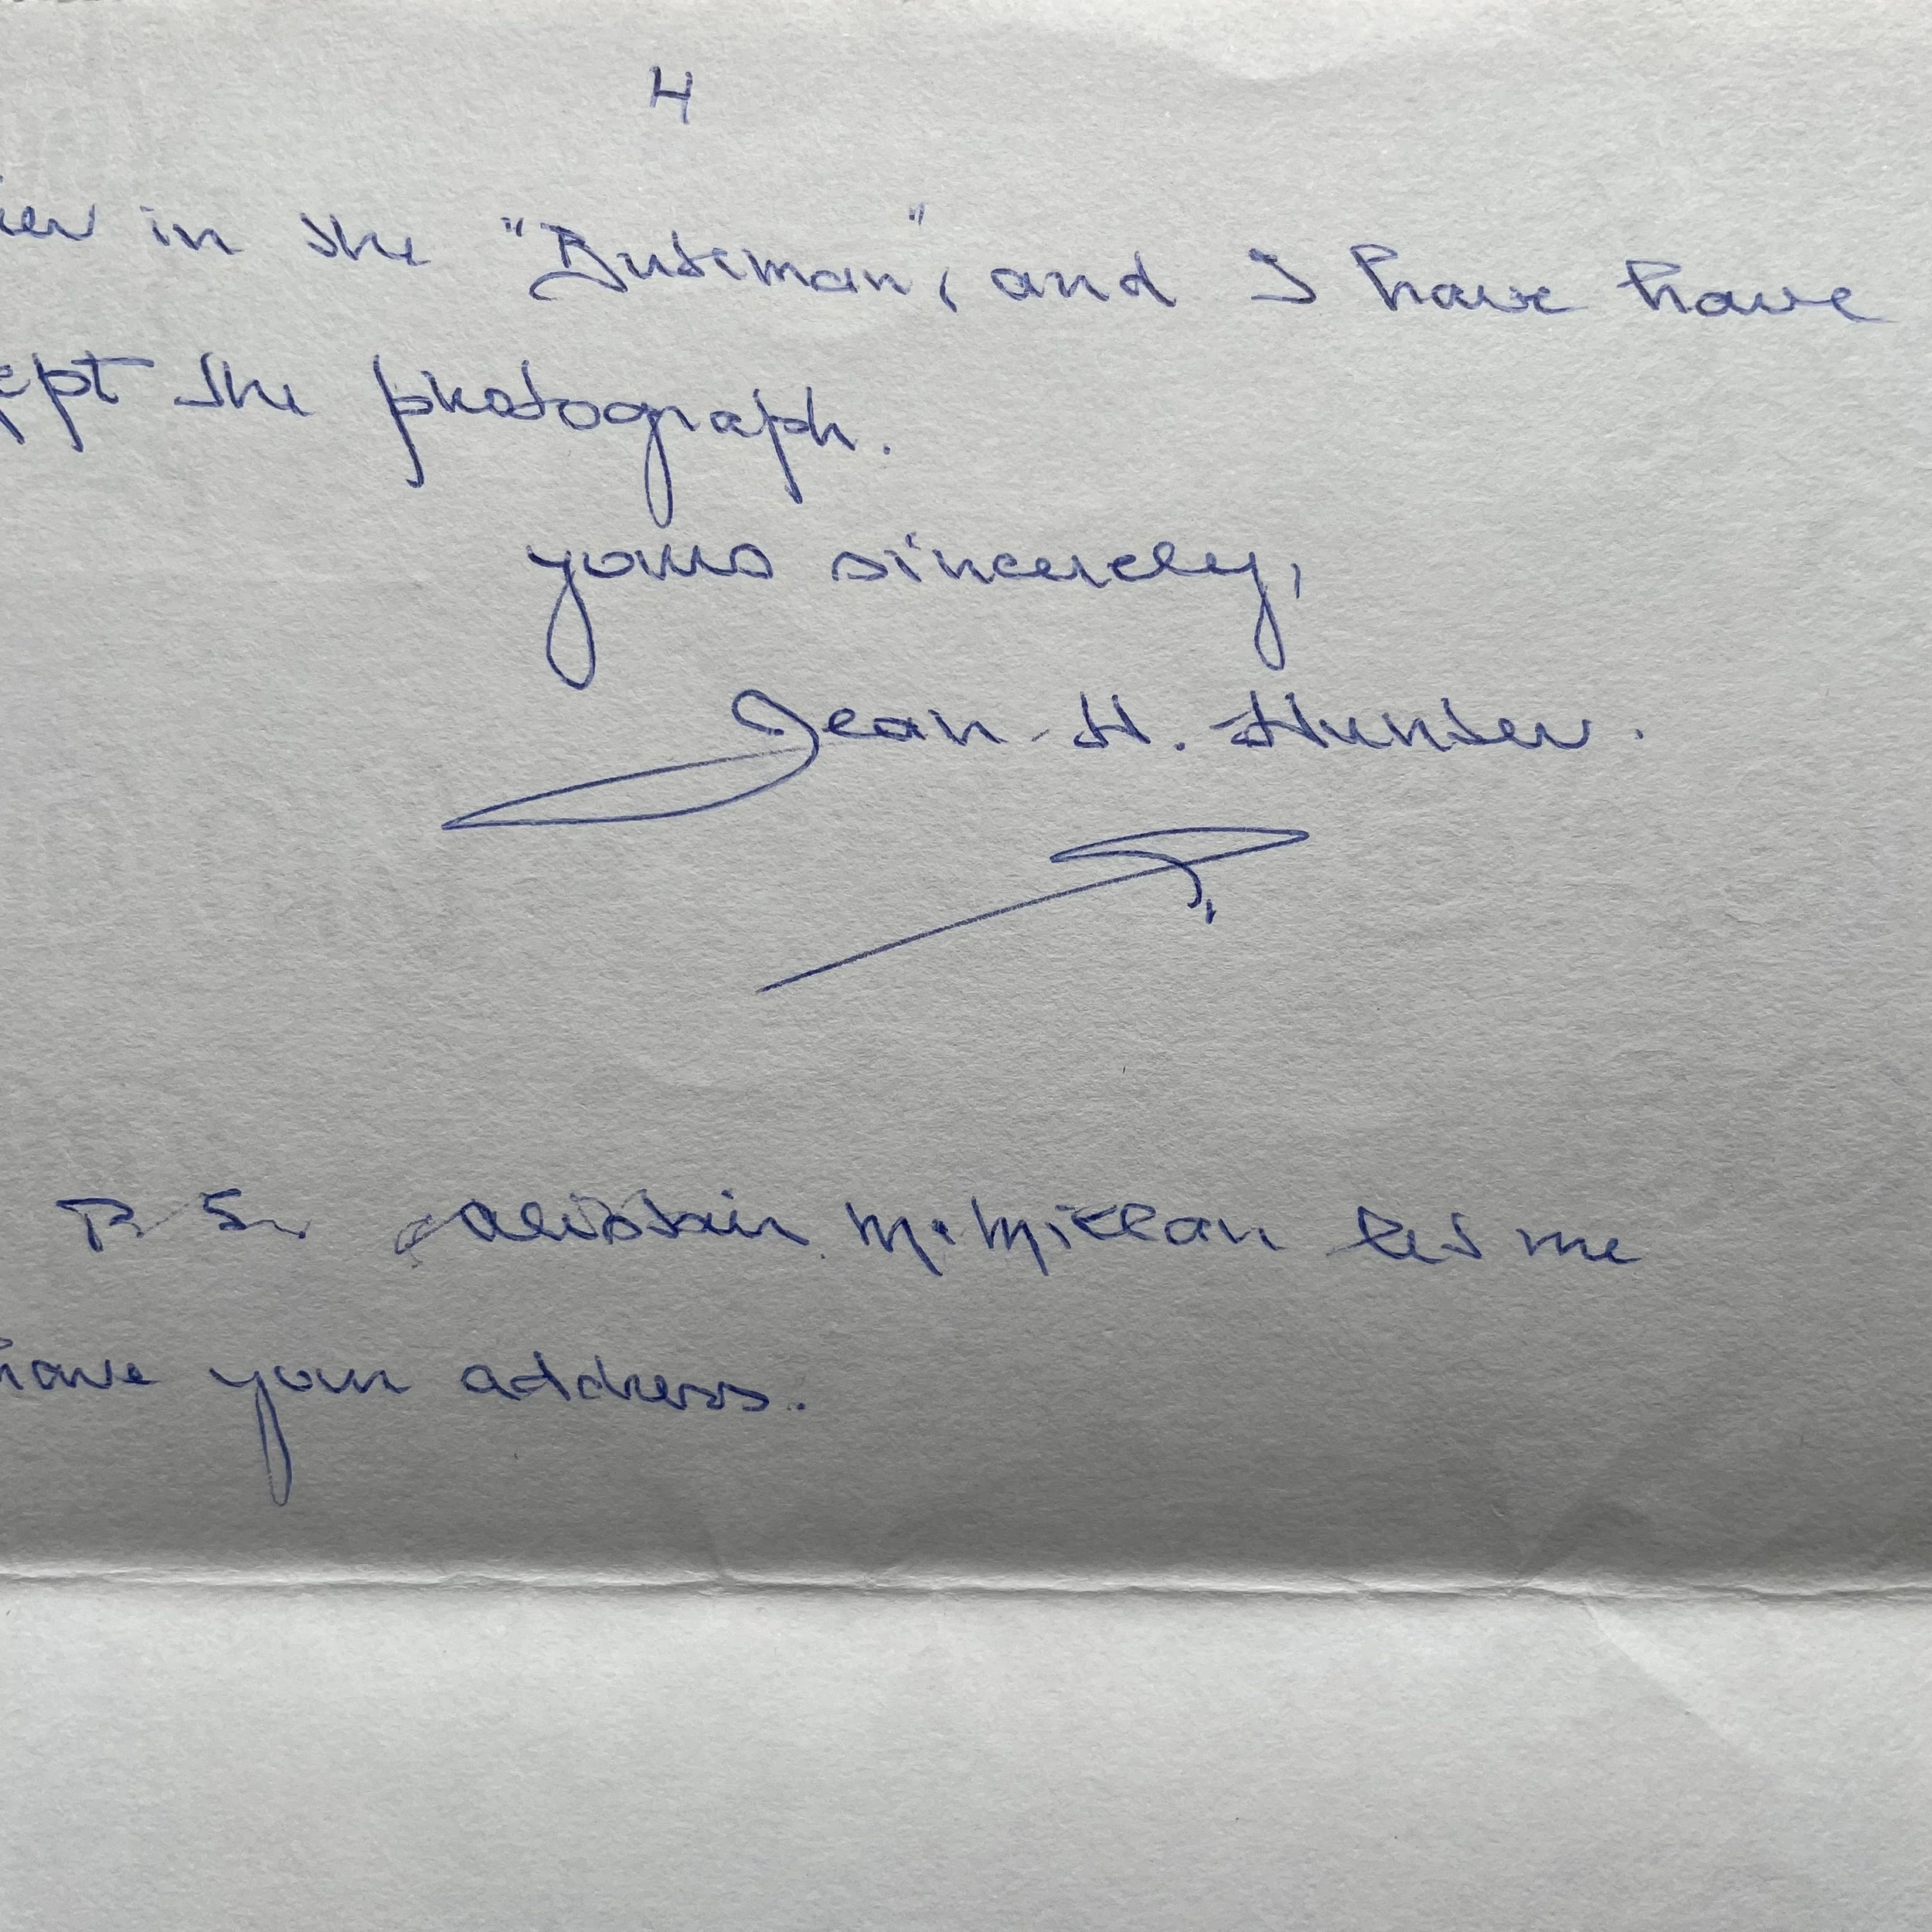 4
in the "Buteman", and I have have
the photograph.
yours sincerely,
Jean H. Hunter.
P.S. Alistair McMillan let me
have your address.